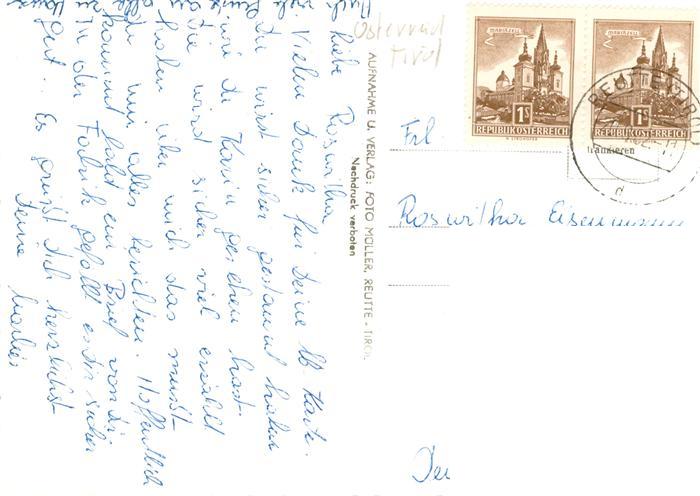 Liebe Roswitha
Vielen Dank für Deine lb Karte.
Du wirst sicher gestaunt haben
wie Du Karin gesehen hast.
Sie wird sicher viel erzählt
haben über mich das musst
Du mir alles berichten. Hoffentlich
kommt bald ein Brief von Dir.
In der Fabrik gefällt es dir sicher
gut. Es grüsst Dich herzlichst
Deine
AUFNAHME U. VERLAG: FOTO MÜLLER, REUTTE - TIROL
Nachdruck verboten
Österreich
Tirol
MARIAZELL
1S
REPUBLIK ÖSTERREICH
MARIAZELL
1S
REPUBLIK ÖSTERREICH
REUTTE, TIROL
d
frankieren
Frl.
Roswitha Eisenmann